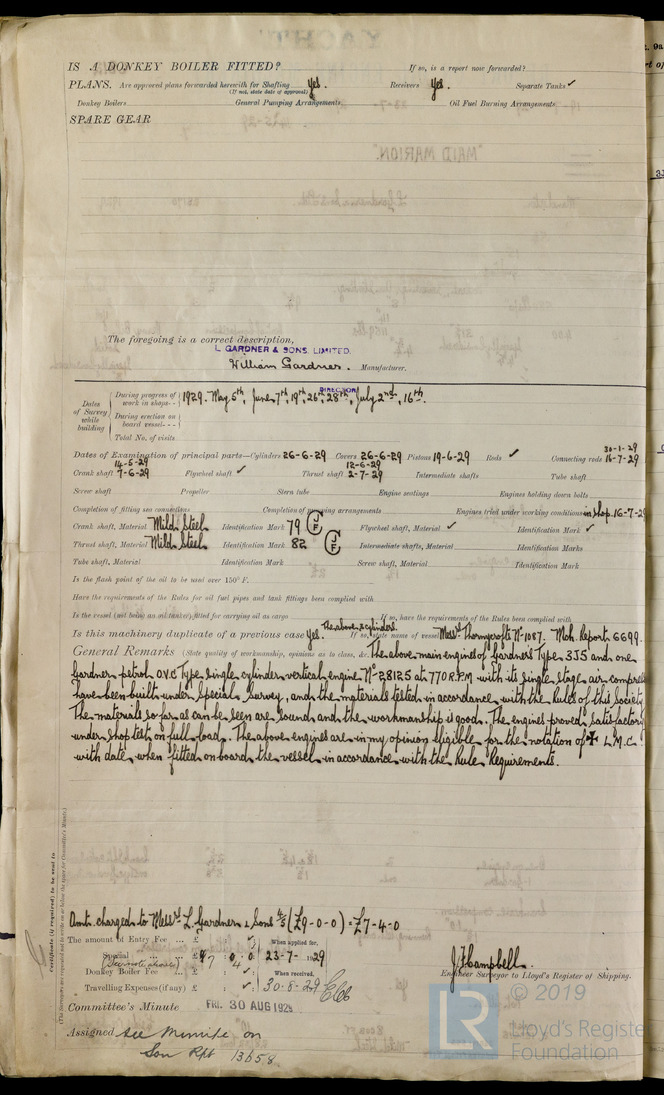 IS A DONKEY BOILER FITTED? If so, is a report now forwarded?
PLANS. Are approved plans forwarded herewith for Shafting Yes. Receivers Yes. Separate Tanks ✓
(If not, state date of approval)
Donkey Boilers General Pumping Arrangements Oil Fuel Burning Arrangements
SPARE GEAR
"MAID MARION"
The foregoing is a correct description,
L. GARDNER & SONS, LIMITED.
William Gardner. Manufacturer.
DIRECTOR
Dates of Survey while building
During progress of work in shops-- 1929. May 6th, June 7th, 19th, 26th, 28th, July 2nd, 16th.
During erection on board vessel---
Total No. of visits
Dates of Examination of principal parts—Cylinders 26-6-29 Covers 26-6-29 Pistons 19-6-29 Rods ✓ Connecting rods 30-1-29 16-7-29
Crank shaft 14-5-29 7-6-29 Flywheel shaft ✓ Thrust shaft 12-6-29 2-7-29 Intermediate shafts Tube shaft
Screw shaft Propeller Stern tube Engine seatings Engines holding down bolts
Completion of fitting sea connections Completion of pumping arrangements Engines tried under working conditions in shop. 16-7-29
Crank shaft, Material Mild Steel Identification Mark 79 Flywheel shaft, Material ✓ Identification Mark ✓
Thrust shaft, Material Mild Steel Identification Mark 82 Intermediate shafts, Material Identification Marks
Tube shaft, Material Identification Mark Screw shaft, Material Identification Mark
Is the flash point of the oil to be used over 150° F.
Have the requirements of the Rules for oil fuel pipes and tank fittings been complied with
Is the vessel (not being an oil tanker) fitted for carrying oil as cargo If so, have the requirements of the Rules been complied with
Is this machinery duplicate of a previous case Yes. If so, state name of vessel Messrs Thornycrofts No 1087. Mch. Report 6699.
General Remarks (State quality of workmanship, opinions as to class, &c. The above main engine of Gardner's Type 3J5 and one
Gardner petrol O.V.C Type single cylinder vertical engine No 28125 at 770 R.P.M with its single stage air compressor
have been built under Special Survey, and the materials tested in accordance with the Rules of this Society
The materials so far as can be seen are sound and the workmanship is good. The engines proved satisfactory
under shop test on full load. The above engines are in my opinion eligible for the notation of ✠ L.M.C.
with date when fitted on board the vessel in accordance with the Rule Requirements.
Amt. charged to Messrs L. Gardner & Sons 4/5 (£9-0-0) = £7-4-0
The amount of Entry Fee ... £ ✓ : When applied for,
Special ... £ 23-7-1929
Donkey Boiler Fee ... £ ✓ : When received,
Travelling Expenses (if any) £ ✓ : 30-8-29
J. Campbell.
Engineer Surveyor to Lloyd's Register of Shipping.
Committee's Minute FRI. 30 AUG 1929
Assigned See Minute on
Son Rpt 13658
Certificate (if required) to be sent to
(The Surveyors are requested not to write on or below the space for Committee's Minute)
LR © 2019
Lloyd's Register
Foundation